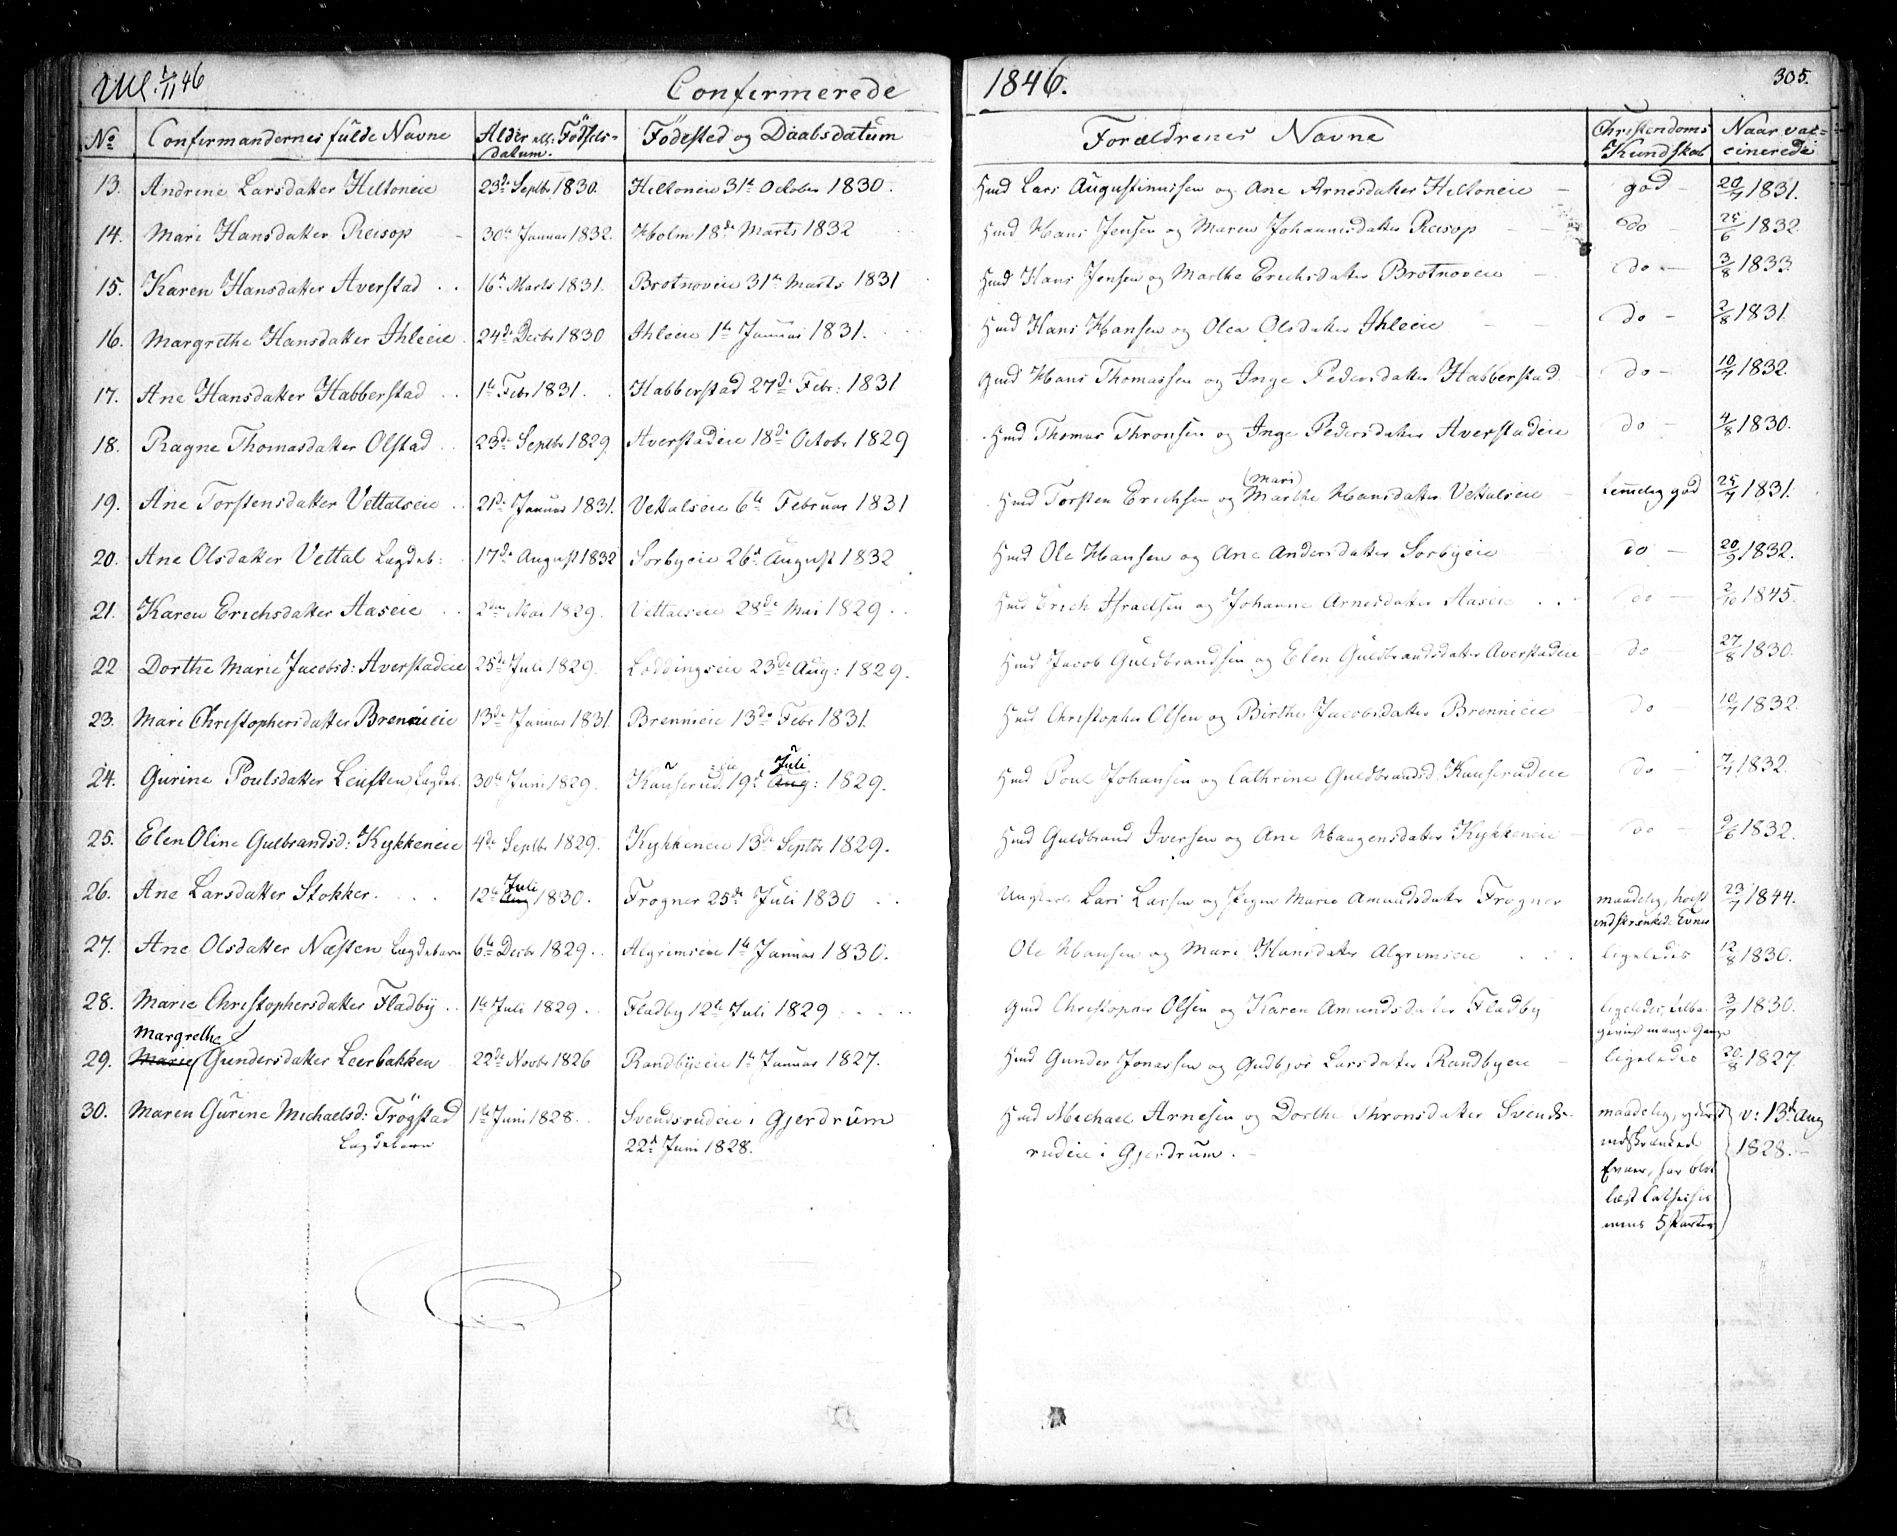 Ull. 1/11 46 Confirmerede 1846. 305.
No Confirmandernes fulde Navne Alder ell: Födsels- Födested og Daabsdatum Forældrenes Navne Christendoms Naar vac-
datum. Kundskab cinerede
13. Andrine Larsdatter Heltoneie 23de Septbr 1830. Heltoneie 31te October 1830. Hmd Lars Augustinussen og Ane Arnesdatter Heltoneie god 20/7 1831.
14. Mari Hansdatter Reisop 30te Januar 1832. Holm 18de Marts 1832 Hmd Hans Jensen og Maren Johannesdatter Reisop do 25/6 1832
15. Karen Hansdatter Averstad 16te Marts 1831. Brotnoveie 31te Marts 1831 Hmd Hans Jensen og Marthe Erichsdatter Brotnoveie do 3/8 1833.
16. Margrethe Hansdatter Ihleeie 24de Decbr 1830 Ihleeie 1te Januar 1831. Hmd Hans Hansen og Olea Olsdatter Ihleeie do 2/8 1831
17. Ane Hansdatter Habberstad 1te Febr 1831. Habberstad 27de Febr: 1831 Gmd Hans Thomassen og Inge Pedersdatter Habberstad do 10/7 1832.
18. Ragne Thomasdatter Olstad 23de Septbr 1829. Averstadeie 18de Octobr 1829 Hmd Thomas Thronsen og Inge Pedersdatter Averstadeie do 4/8 1830.
(Mari)
19. Ane Torstensdatter Vettalseie 21de Januar 1831. Vettalseie 6te Februar 1831 Hmd Torsten Erichsen og Marthe Hansdatter Vettalseie temelig god 25/7 1831.
20. Ane Olsdatter Vettal Lægdeb: 17de August 1832 Sorbyeie 26de August 1832 Hmd Ole Hansen og Ane Andersdatter Sorbyeie do 20/9 1832.
21. Karen Erichsdatter Aaseie 2den Mai 1829. Vettalseie 28de Mai 1829. Hmd Erich Israelsen og Johanne Arnesdatter Aaseie do 2/10 1845.
22 Dorthe Marie Jacobsd: Averstadeie 25de Juli 1829. Loddingseie 23de Aug: 1829. Hmd Jacob Guldbrandsen og Elen Guldbrandsdatter Averstadeie do 27/8 1830.
23. Mari Christophersdatter Brennieie 13de Januar 1831. Brennieie 13de Febr 1831. Hmd Christopher Olsen og Birthe Jacobsdatter Brennieie do 10/7 1832.
eie Juli
24. Gurine Poulsdatter Leuften Lægdeb. 30te Juni 1829. Kauserud. 19de Aug: 1829. Hmd Poul Johansen og Cathrine Guldbrandsd. Kauserudeie do 7/7 1832.
25. Elen Oline Gulbrandsd: Kykkeneie 4de Septbr 1829. Kykkeneie 13de Septbr 1829. Hmd Guldbrand Iversen og Ane Haagensdatter Kykkeneie do 9/6 1832.
Juli
26. Ane Larsdatter Stokker. 12te Aug 1830. Frogner 25de Juli 1830 Lars Larsen og Pigen Marie Amundsdatter Frogner maadelig, høist 23/7 1844.
indskrænked: Evner
27. Ane Olsdatter Næsten Lægdebarn 6te Decbr 1829. Algrimseie 1te Januar 1830. Ole Hansen og Mari Hansdatter Algrimseie ligeledes 12/8 1830.
28. Marie Christophersdatter Fladby 1te Juli 1829. Fladby 12te Juli 1829 Gmd Christopher Olsen og Karen Amundsdatter Fladby ligeledes, 3/7 1830.
mange Gange
Margrethe
29. Marie Gundersdatter Leerbakken 22de Novbr 1826 Randbyeie 1te Januar 1827. Hmd Gunder Jonassen og Gudbjør Larsdatter Randbyeie ligeledes 20/8 1827.
30. Maren Gurine Michaelsd: Trögstad 1te Juni 1828. Svendsrudeie i Gjerdrum Hmd Michael Arnesen og Dorthe Thronsdatter Svends- maadelig, yderst v: 13de Aug
Lægdebarn 22de Juni 1828. rudeie i Gjerdrum. indskrænkede 1828.
Evner, har blot
læst Catechis-
mens 5 Parter